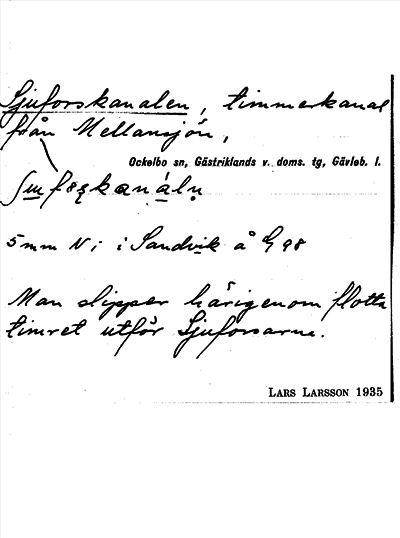 Sjuforskanalen, timmerkanal
från Mellansjön,
Ockelbo sn, Gästriklands v. doms. tg, Gävleb. l.
5 mm N i i Sandvik å G 98
Man slipper härigenom flotta
timret utför Sjuforsarne.
LARS LARSSON 1935